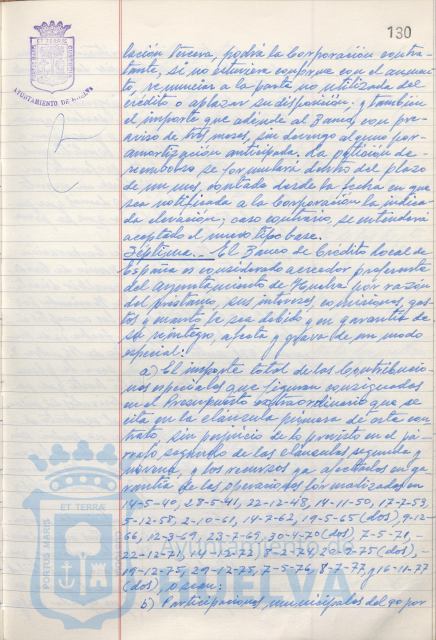 130
AYUNTAMIENTO DE HUELVA
lación tercera, podrá la Corporación contra-
tante, si no estuviera conforme con el aumen-
to, renunciar a la parte no utilizada del
crédito o aplazar su disposición, y también
el importe que adeude al Banco, con pre-
aviso de tres meses, sin devengo alguno por
amortización anticipada. La petición de
reembolso se formulará dentro del plazo
de un mes, contado desde la fecha en que
sea notificada a la Corporación la indica-
da elevación; caso contrario, se entenderá
aceptado el nuevo tipo base.
Séptima.- El Banco de Crédito Local de
España es considerado acreedor preferente
del Ayuntamiento de Huelva por razón
del préstamo, sus intereses, comisiones, gas-
tos y cuanto le sea debido, y en garantía de
su reintegro, afecta y grava de un modo
especial:
a) El importe total de las Contribucio-
nes especiales que figuran consignadas
en el Presupuesto extraordinario que se
cita en la cláusula primera de este con-
trato, sin perjuicio de lo previsto en el pá-
rrafo segundo de las cláusulas segunda y
novena, y los recursos ya afectados en ga-
rantía de las operaciones formalizadas en
14-5-40, 28-5-41, 22-12-48, 14-11-50, 17-7-53,
5-12-58, 2-10-61, 14-7-62, 19-5-65 (dos), 9-12-
66, 12-3-69, 23-7-69, 30-4-70 (dos), 7-5-71,-
22-12-71, 14-12-72, 8-2-74, 20-2-75 (dos),-
19-12-75, 29-12-75, 7-5-76, 8-7-77, y 16-11-77
(dos), o sean:
b) Participaciones municipales del 90 por
ET TERRÆ
PORTUS MARIS
CUSTODIA
Ayuntamiento de
HUELVA